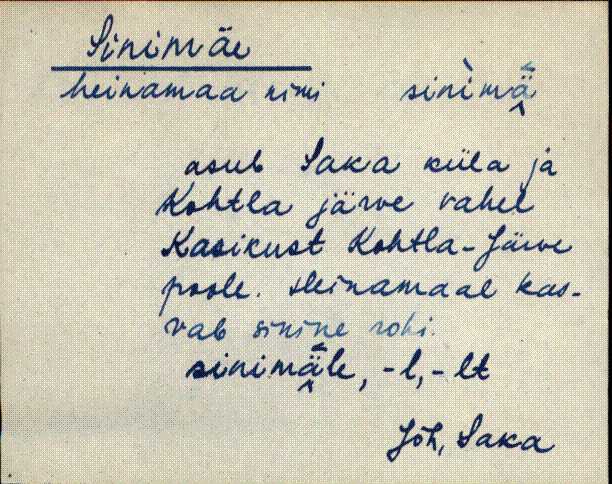 Sinimäe
heinamaa nimi sinìmä
asub Saka küla ja
Kohtla järve vahel
Kasikust Kohtla-Järve
poole. Heinamaal kas-
vab sinine rohi.
sinimäle, -l, -lt
Jõh, Saka